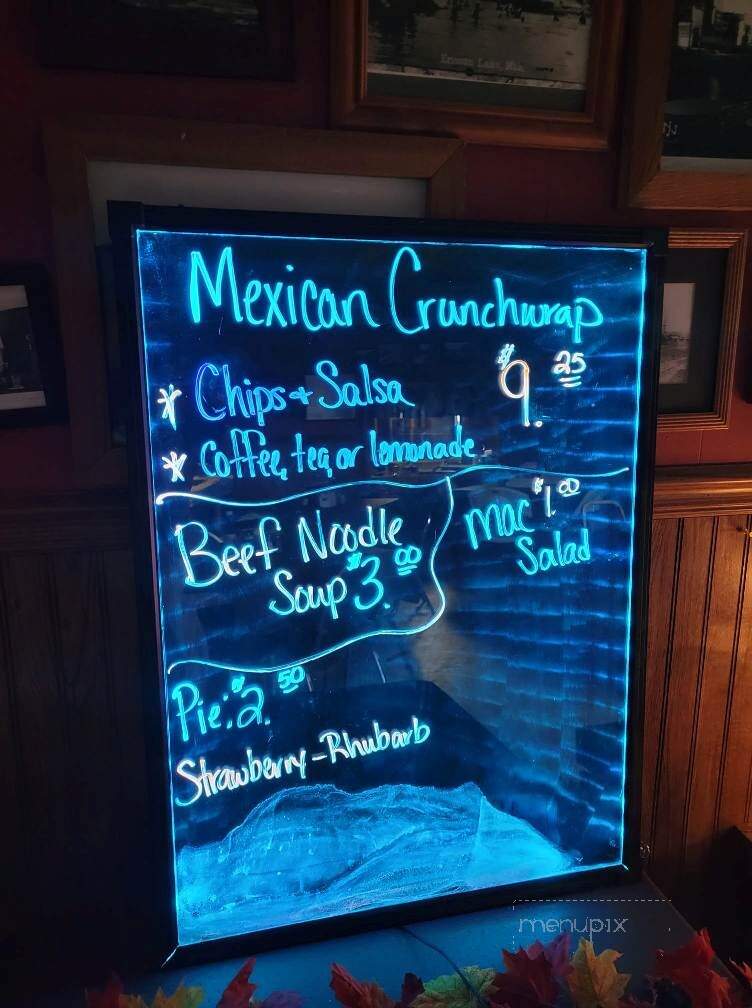 Mexican Crunchwrap
* Chips + Salsa $9.25
* Coffee, tea, or lemonade
Beef Noodle
Soup $3.00
Mac $1.00
Salad
Pie: $2.50
Strawberry-Rhubarb
menupix